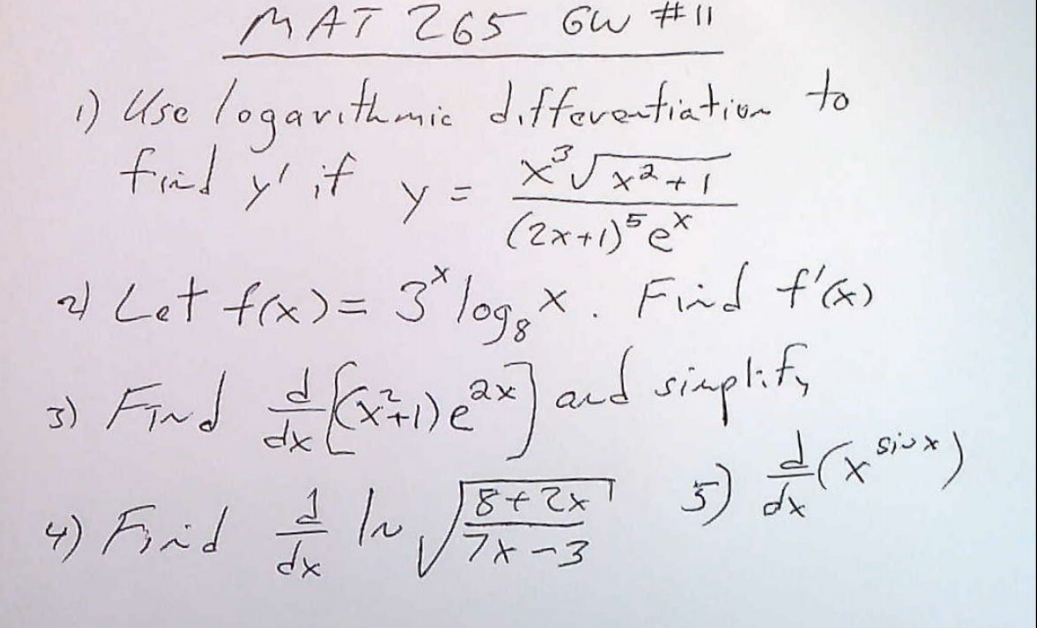 MAT 265 GW #11
1) Use logarithmic differentiation to
find y' if y = x³√(x²+1) / (2x+1)⁵eˣ
2) Let f(x) = 3ˣ log₈ x. Find f'(x)
3) Find d/dx [(x²+1)e²ˣ] and simplify
4) Find d/dx ln √((8+2x)/(7x-3)) 5) d/dx (x^sinx)